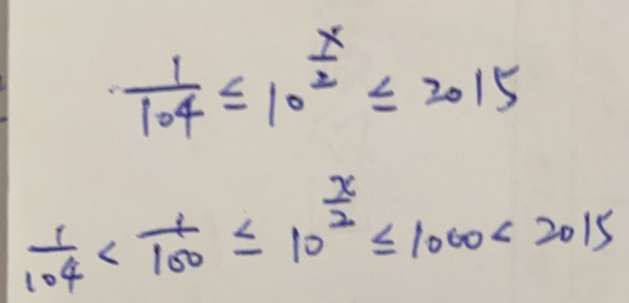 1/104 ≤ 10^(x/2) ≤ 2015
1/104 < 1/100 ≤ 10^(x/2) ≤ 1000 < 2015